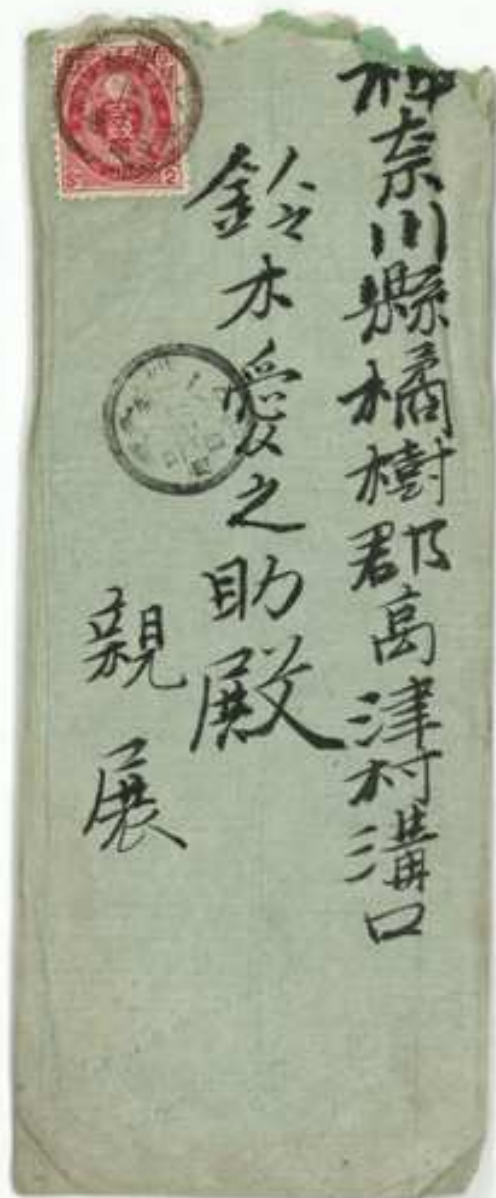 神奈川縣橘樹郡高津村溝口
鈴木愛之助殿
親展